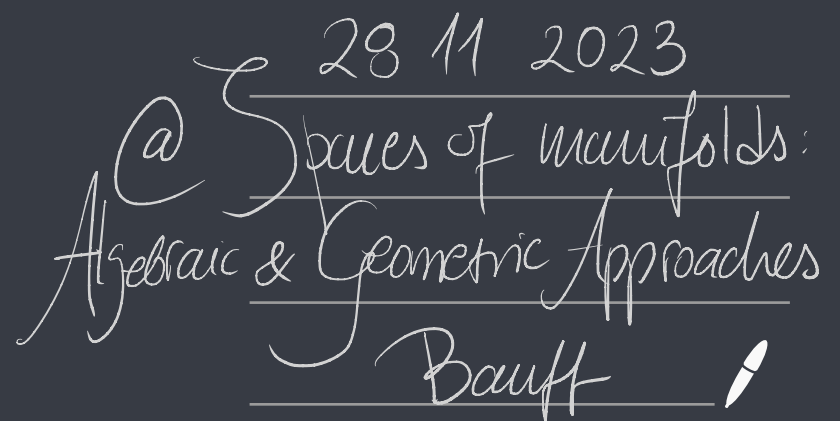 28 11 2023
@ Spaces of manifolds:
Algebraic & Geometric Approaches
Banff